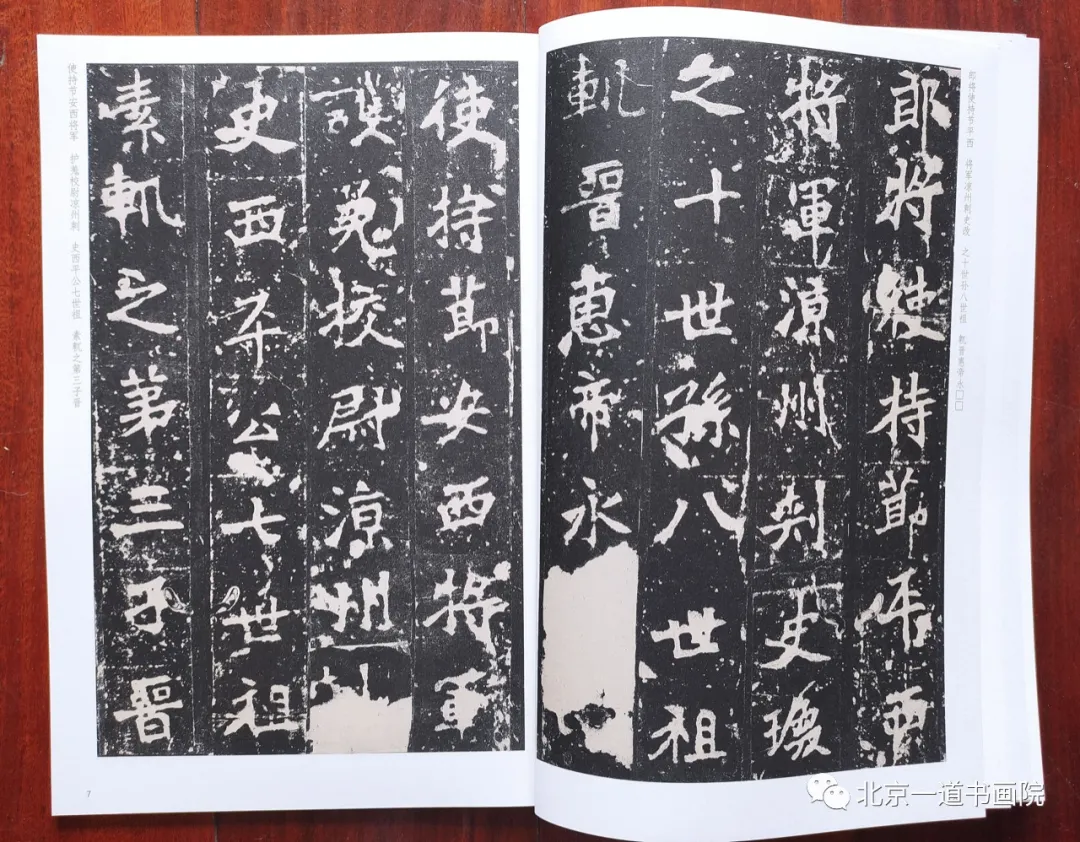 郎将使持节平西 将军凉州刺史瑍 之十世孙八世祖 軌晋惠帝永□□
郎將使持節平西
將軍涼州刾史瑍
之十世孫八世祖
軌晉惠帝永
使持節安西將軍
護羌校尉涼州
史西平公七世祖
素軌之第三子晉
使持节安西将军 护羌校尉凉州刺 史西平公七世祖 素軌之第三子晋
7
北京一道书画院